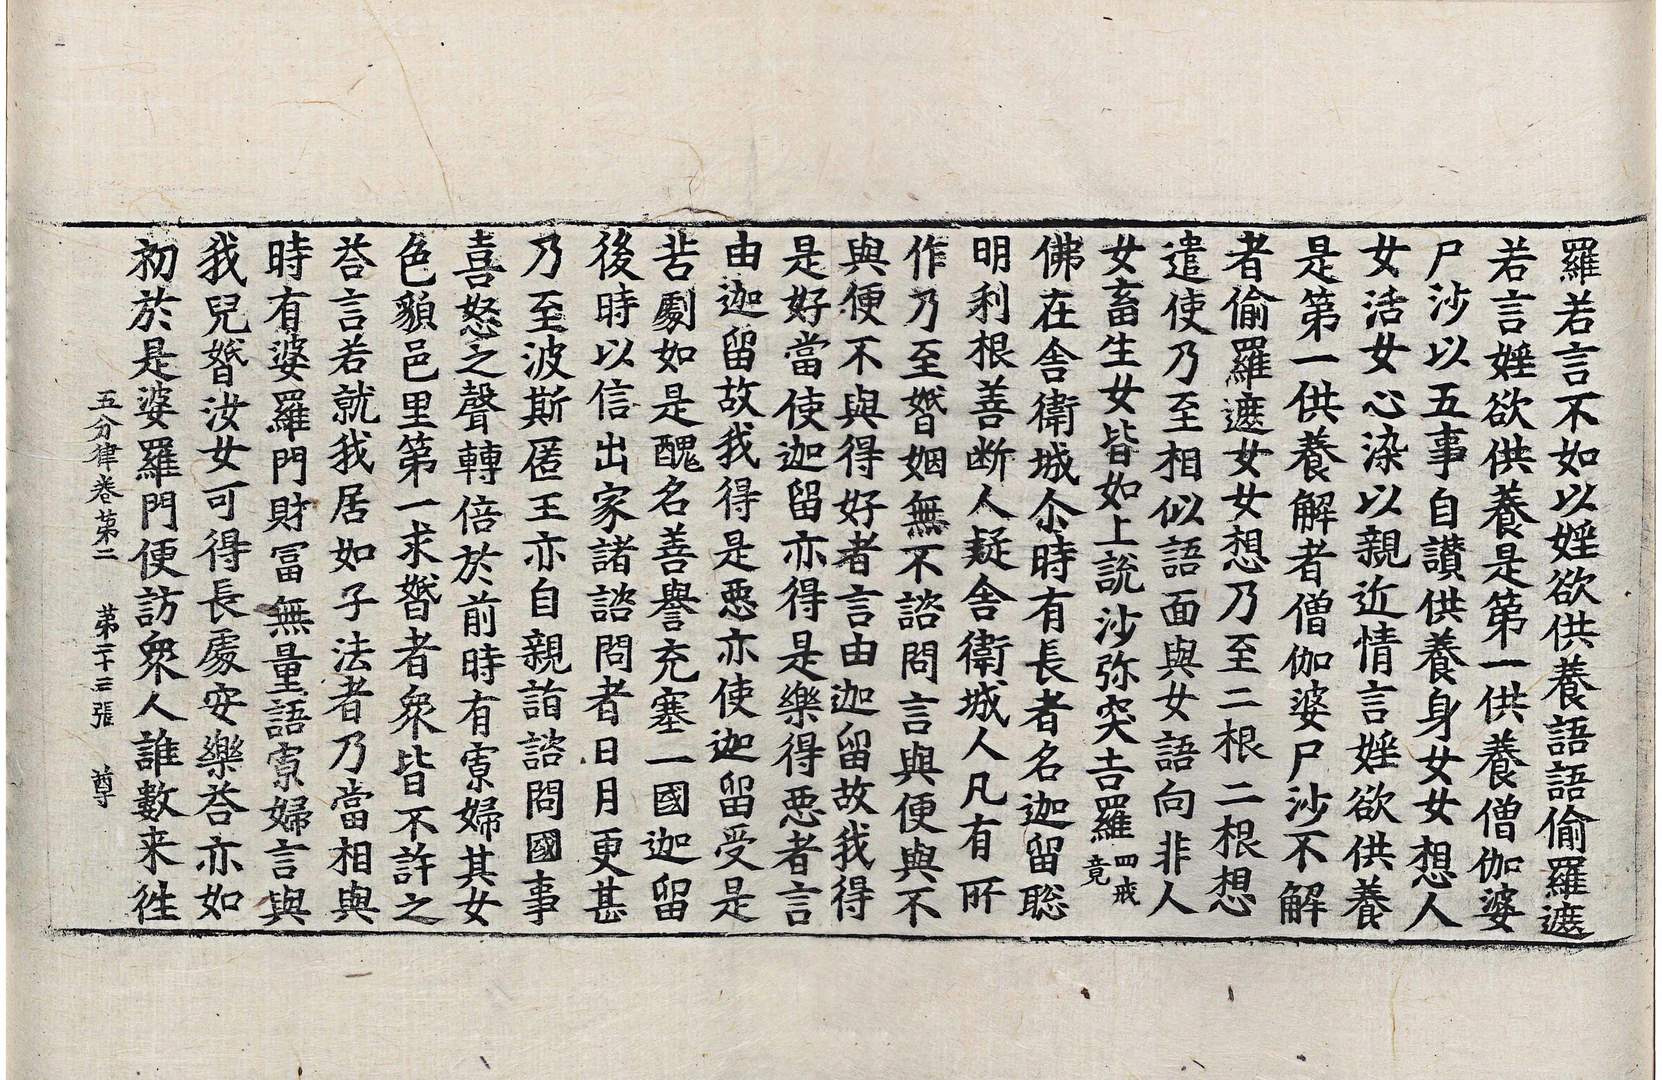 羅若言不如以婬欲供養語語偷羅遮
若言婬欲供養是第一供養僧伽婆
尸沙以五事自讃供養身女女想人
女活女心染以親近情言婬欲供養
是第一供養解者僧伽婆尸沙不解
者偷羅遮女女想乃至二根二根想
遣使乃至相似語面與女語向非人
女畜生女皆如上說沙弥突吉羅四戒竟
佛在舎衛城尒時有長者名迦留聡
明利根善断人疑舎衛城人凡有所
作乃至婚姻無不諮問言與便與不
與便不與得好者言由迦留故我得
是好當使迦留亦得是樂得悪者言
由迦留故我得是悪亦使迦留受是
苦劇如是醜名善譽充塞一國迦留
後時以信出家諸諮問者日月更甚
乃至波斯匿王亦自親詣諮問國事
喜怒之聲轉倍於前時有寡婦其女
色貌邑里第一求婚者衆皆不許之
荅言若就我居如子法者乃當相與
時有婆羅門財冨無量語寡婦言與
我兒婚汝女可得長處安樂荅亦如
初於是婆羅門便訪衆人誰數来徃
五分律卷第二 第二十三張 尊